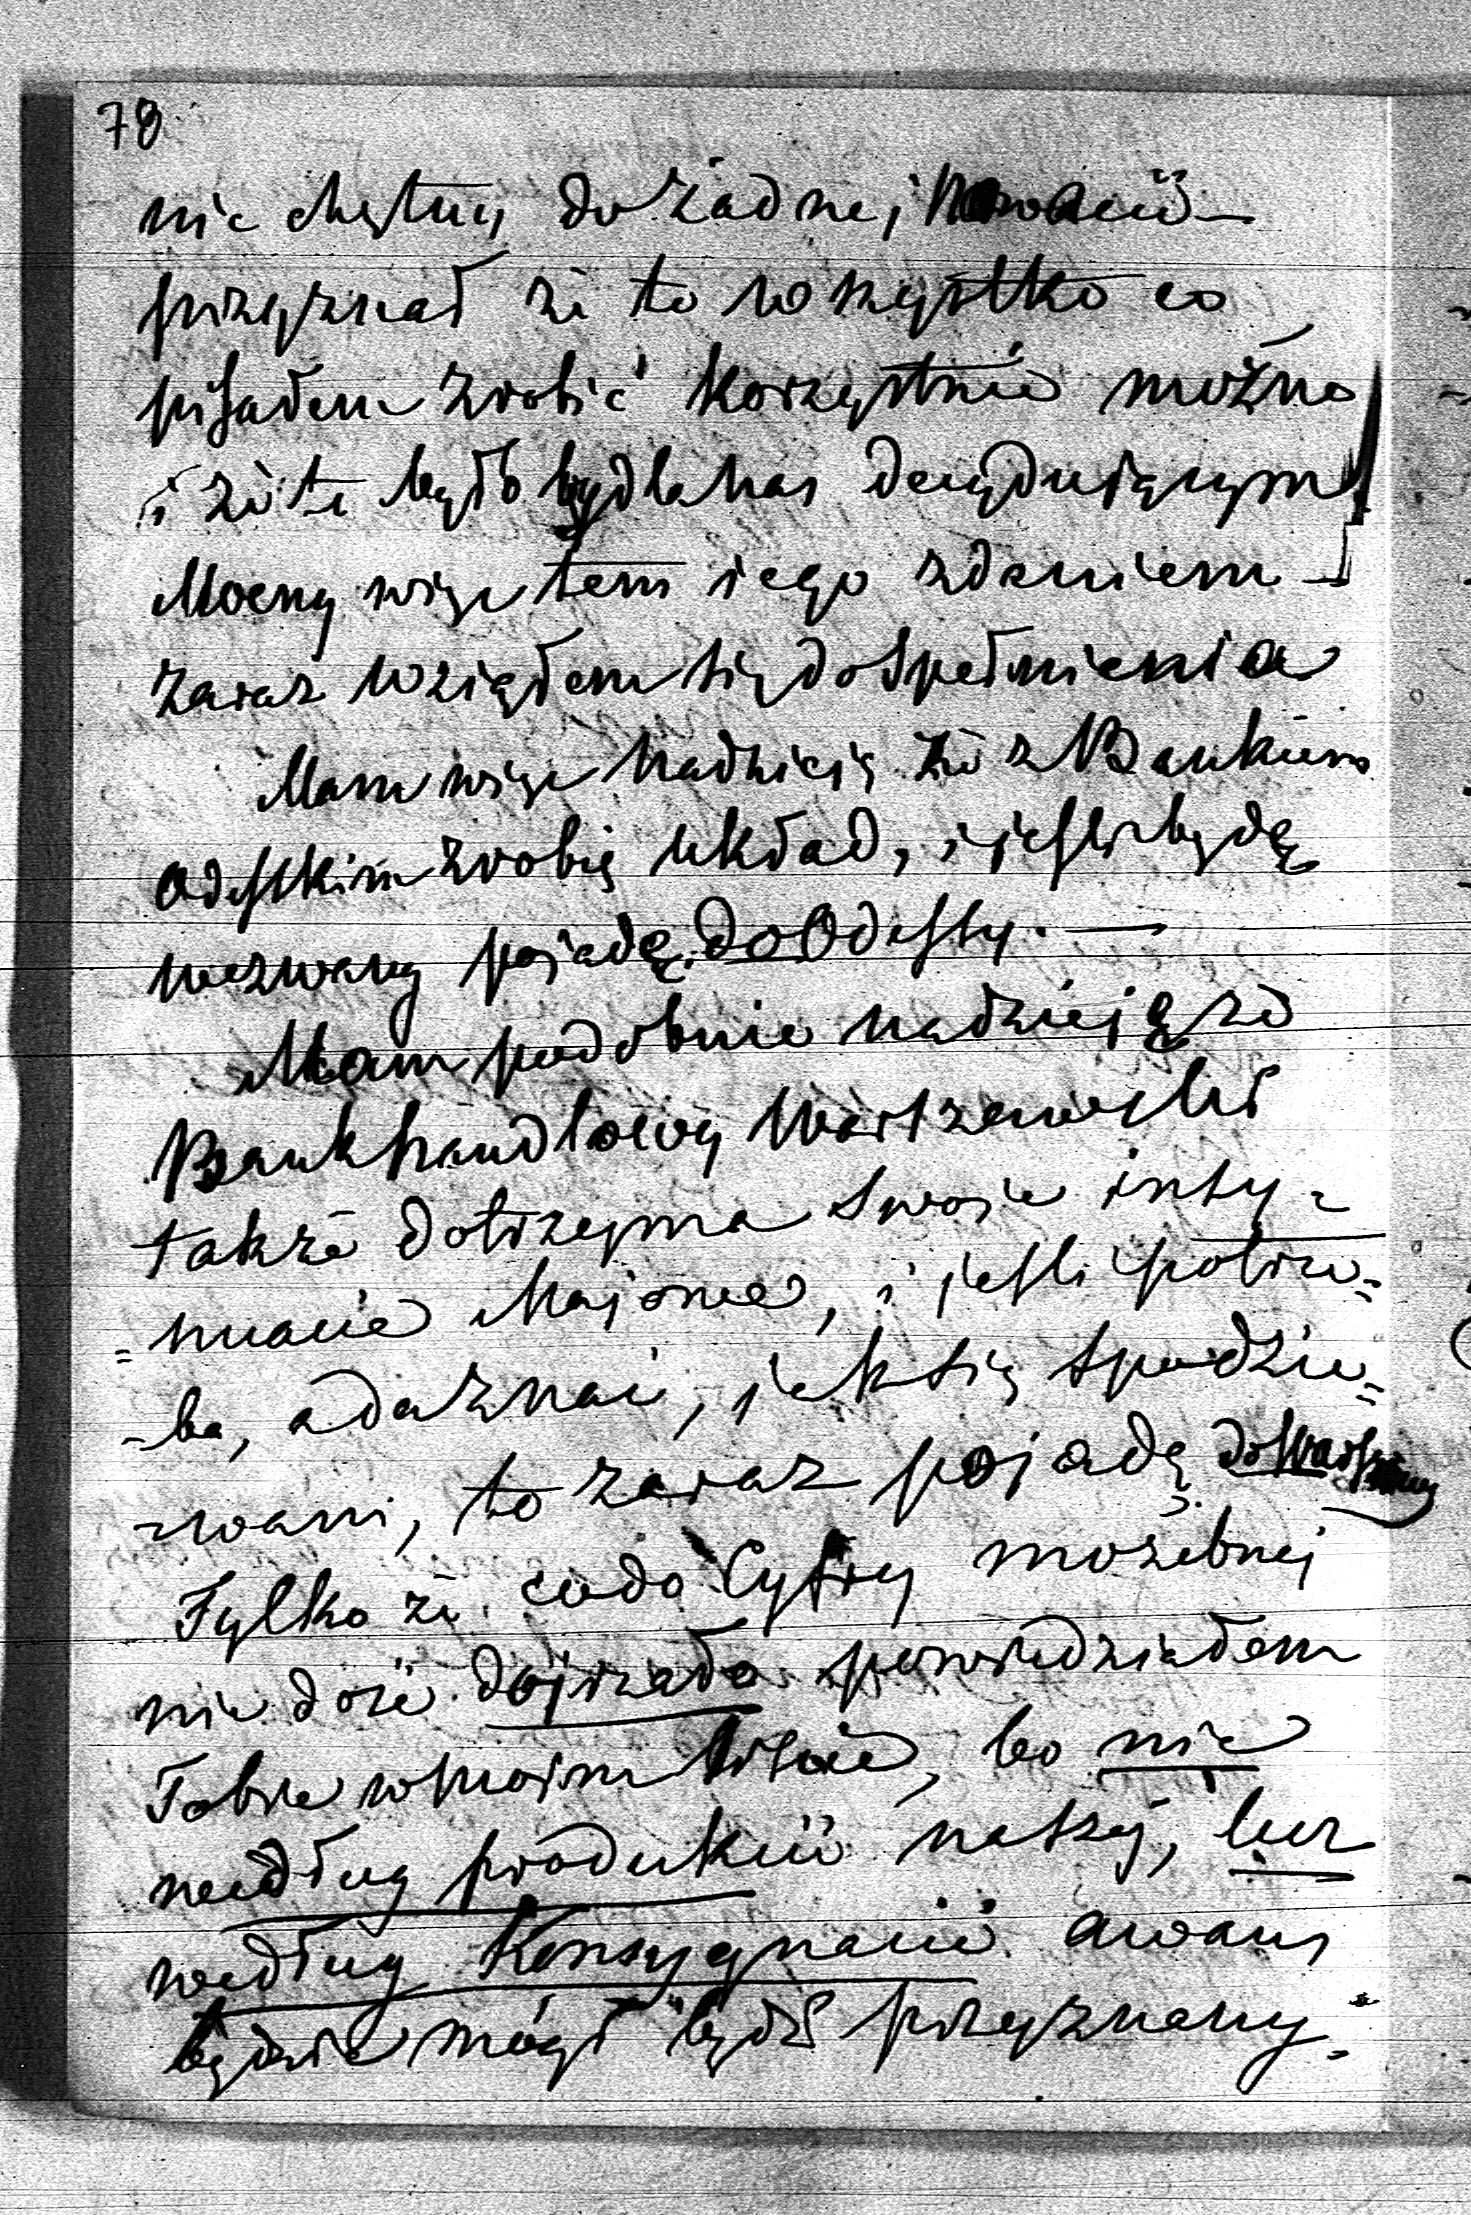 78
nie chętny do żadnej Nowacii —
przyznał że to wszystko co
zrobić korzystnie można
i że to było by dla nas
Mocny więc tem jego zdaniem —
zaraz wziąłem się do spełnienia
Mam więc nadzieję że z Bankiem
Odesskim zrobię układ, i jeśli będę
wezwany pojadę do Odessy. —
Mam podobnie nadzieję że
Bank handlowy Warszawski
także dotrzyma swoje insy-
=nuacie Majowe, i jeśli potrze=
-ba, a da znać, jak się spodzie=
-wam, to zaraz pojadę do Warszawy
Tylko że co do Cyfry możebnej
nie dość dojrzale powiedziałem
Tobie w moim liście, bo nie
według produkcii naszej, lecz
według Konsygnacii awans
będzie mógł bydź przyznany.